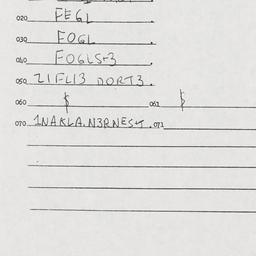 020 FEGL
030 FOGL
040 FOGLS-3
050 21FL13 DORT3.
060 $ 061 $
070 1NAKLA.N3RNEST. 071